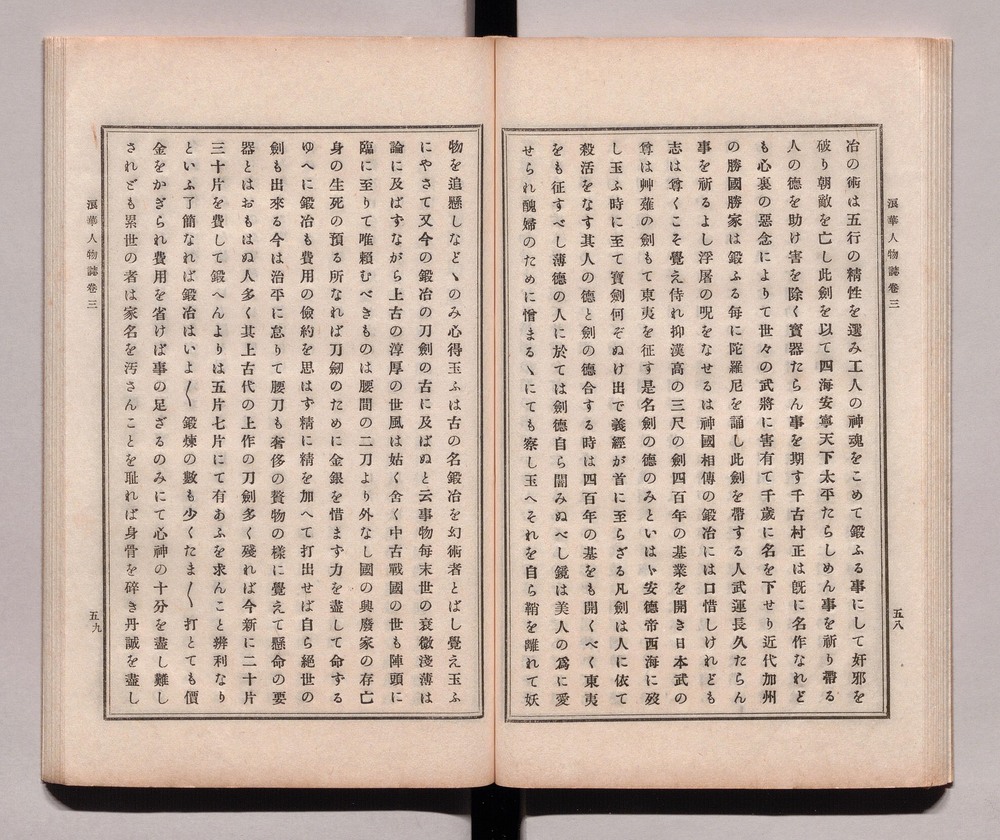 浪華人物誌卷三
五八
冶の術は五行の精性を選み工人の神魂をこめて鍛ふる事にして奸邪を
破り朝敵を亡し此劍を以て四海安寧天下太平たらしめん事を祈り帶る
人の德を助け害を除く寶器たらん事を期す千古村正は旣に名作なれど
も心裏の惡念によりて世々の武將に害有て千歲に名を下せり近代加州
の勝國勝家は鍛ふる每に陀羅尼を誦し此劍を帶する人武運長久たらん
事を祈るよし浮屠の呪をなせるは神國相傳の鍛冶には口惜しけれども
志は尊くこそ覺え侍れ抑漢高の三尺の劍四百年の基業を開き日本武の
尊は艸薙の劍もて東夷を征す是名劍の德のみといはゝ安德帝西海に歿
し玉ふ時に至て寶劍何ぞぬけ出で義經が首に至らざる凡劍は人に依て
殺活をなす其人の德と劍の德合する時は四百年の基をも開くべく東夷
をも征すべし薄德の人に於ては劍德自ら闇みぬべし鏡は美人の爲に愛
せられ醜婦のために憎まるゝにても察し玉へそれを自ら鞘を離れて妖
物を追懸しなどゝのみ心得玉ふは古の名鍛冶を幻術者とばし覺え玉ふ
にやさて又今の鍛冶の刀劍の古に及ばぬと云事物每末世の衰微淺薄は
論に及ばずながら上古の淳厚の世風は姑く舍く中古戰國の世も陣頭に
臨に至りて唯賴むべきものは腰間の二刀より外なし國の興廢家の存亡
身の生死の預る所なれば刀劒のために金銀を惜まず力を盡して命ずる
ゆへに鍛冶も費用の儉約を思はず精に精を加へて打出せば自ら絕世の
劍も出來る今は治平に怠りて腰刀も奢侈の贅物の樣に覺えて懸命の要
器とはおもはぬ人多く其上古代の上作の刀劍多く殘れば今新に二十片
三十片を費して鍛へんよりは五片七片にて有あふを求んこと辨利なり
といふ了簡なれば鍛冶はいよ〳〵鍛煉の數も少くたま〳〵打とても價
金をかぎられ費用を省けば事の足ざるのみにて心神の十分を盡し難し
されども累世の者は家名を汚さんことを耻れば身骨を碎き丹誠を盡し
浪華人物誌卷三
五九